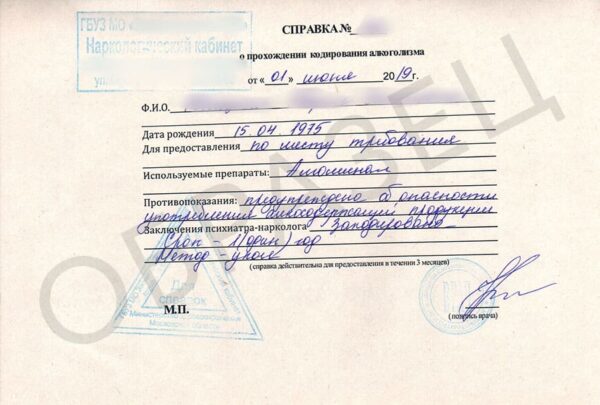 ГБУЗ МО
Наркологический кабинет
СПРАВКА №
о прохождении кодирования алкоголизма
от «01» июля 2019г.
Ф.И.О.
Дата рождения 15.04.1975
Для предоставления по месту требования
Используемые препараты:
Противопоказания: предупреждена об опасности
употребления алкосодержащей продукции
Заключения психиатра-нарколога Закодирована
Срок - 1(один) год
Метод - укол
(справка действительна для предоставления в течении 3 месяцев)
М.П.
(подпись врача)
Для
справок
Министерство здравоохранения
Московской области
ВРАЧ
ОБРАЗЕЦ